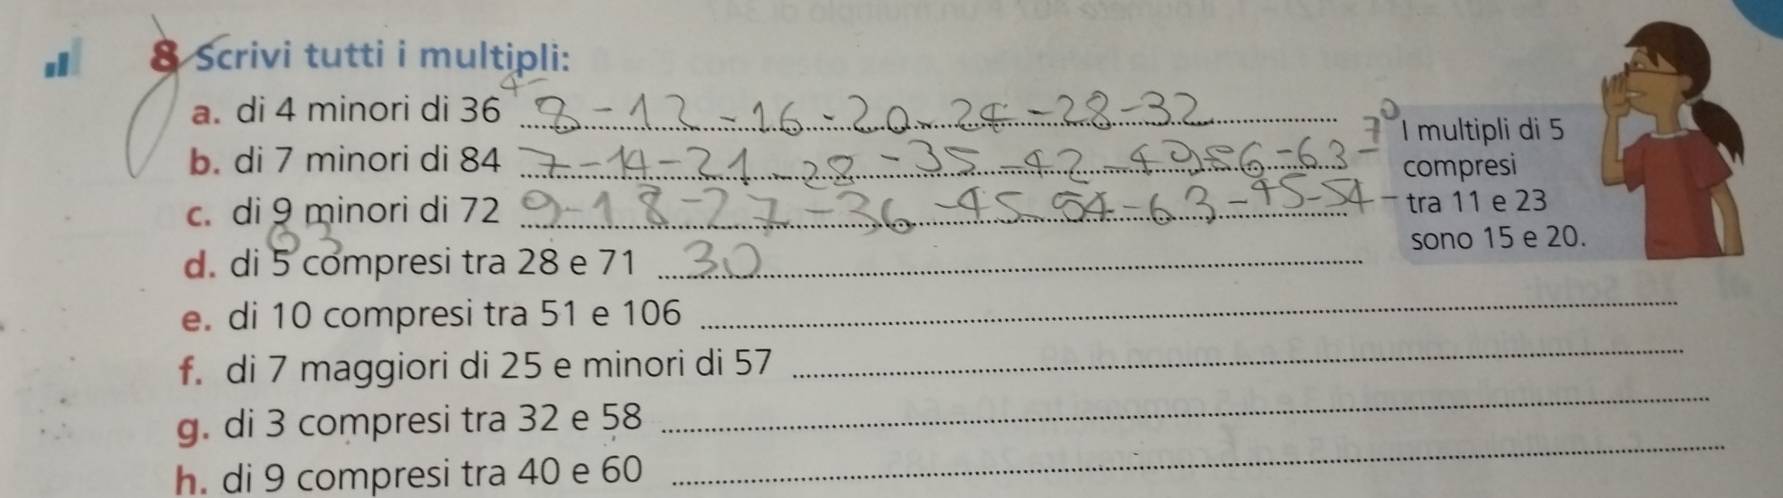 8 Scrivi tutti i multipli:
a. di 4 minori di 36 4 - 8 - 12 - 16 - 20 - 24 - 28 - 32
b. di 7 minori di 84 7 - 14 - 21 - 28 - 35 - 42 - 49 - 56 - 63 - 70
c. di 9 minori di 72 9 - 18 - 27 - 36 - 45 - 54 - 63 - 45 - 54 -
63
d. di 5 compresi tra 28 e 71 30
e. di 10 compresi tra 51 e 106
f. di 7 maggiori di 25 e minori di 57
g. di 3 compresi tra 32 e 58
h. di 9 compresi tra 40 e 60
I multipli di 5
compresi
tra 11 e 23
sono 15 e 20.